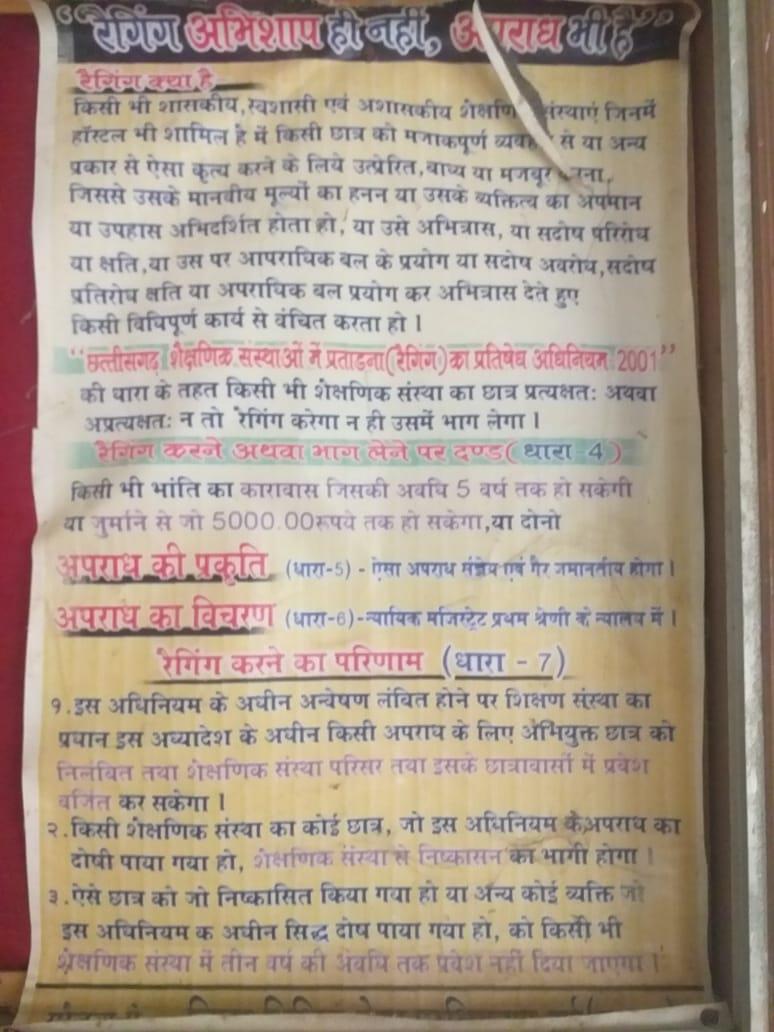 "रैगिंग अभिशाप ही नहीं, अपराध भी है"
रैगिंग क्या है
किसी भी शासकीय,स्वशासी एवं अशासकीय शेक्षणि संस्थाएं जिनमें
हॉस्टल भी शामिल है में किसी छात्र को मजाकपूर्ण व्यवहार से या अन्य
प्रकार से ऐसा कृत्य करने के लिये उत्प्रेरित,बाध्य या मजबूर करना,
जिससे उसके मानवीय मूल्यों का हनन या उसके व्यक्तित्व का अपमान
या उपहास अभिदर्शित होता हो, या उसे अभित्रास, या सदोष परिरोध
या क्षति,या उस पर आपराधिक बल के प्रयोग या सदोष अवरोध,सदोष
प्रतिरोध क्षति या अपराधिक बल प्रयोग कर अभित्रास देते हुए
किसी विधिपूर्ण कार्य से वंचित करता हो।
"छत्तीसगढ़ शेक्षणिक संस्थाओं में प्रताडना(रैगिंग)का प्रतिषेध अधिनियम 2001"
की धारा के तहत किसी भी शेक्षणिक संस्था का छात्र प्रत्यक्षतः अथवा
अप्रत्यक्षतः न तो रेगिंग करेगा न ही उसमें भाग लेगा।
रैगिंग करने अथवा भाग लेने पर दण्ड(धारा-4)
किसी भी भांति का कारावास जिसकी अवधि 5 वर्ष तक हो सकेगी
या जुर्माने से जो 5000.00रूपये तक हो सकेगा,या दोनो
अपराध की प्रकृति (धारा-5) - ऐसा अपराध संज्ञेय एवं गैर जमानतीय होगा।
अपराध का विचरण (धारा-6)-न्यायिक मजिस्ट्रेट प्रथम श्रेणी के न्यालय में।
रैगिंग करने का परिणाम (धारा - 7)
१.इस अधिनियम के अधीन अन्वेषण लंवित होने पर शिक्षण संस्था का
प्रधान इस अध्यादेश के अधीन किसी अपराध के लिए अभियुक्त छात्र को
निलंवित तथा शेक्षणिक संस्था परिसर तथा इसके छात्रावासों में प्रवेश
वर्जित कर सकेगा।
२.किसी शेक्षणिक संस्था का कोई छात्र, जो इस अधिनियम के अपराध का
दोषी पाया गया हो, शेक्षणिक संस्था से निष्कासन का भागी होगा।
३.ऐसे छात्र को जो निष्कासित किया गया हो या अन्य कोई व्यक्ति जो
इस अधिनियम क अधीन सिद्ध दोष पाया गया हो, को किसी भी
शेक्षणिक संस्था में तीन वर्ष की अवधि तक प्रवेश नहीं दिया जाएगा।